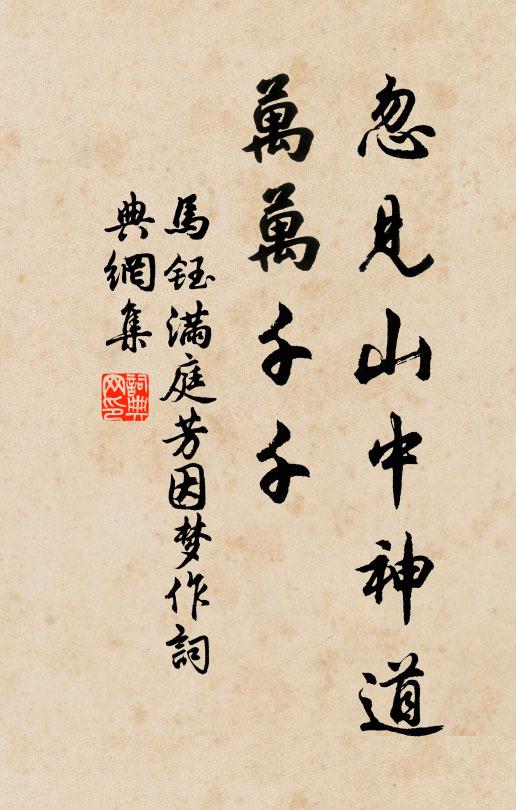 忽見山中神道
萬萬千千
馬鈺滿庭芳因梦作詞
典網集
詞典
网印